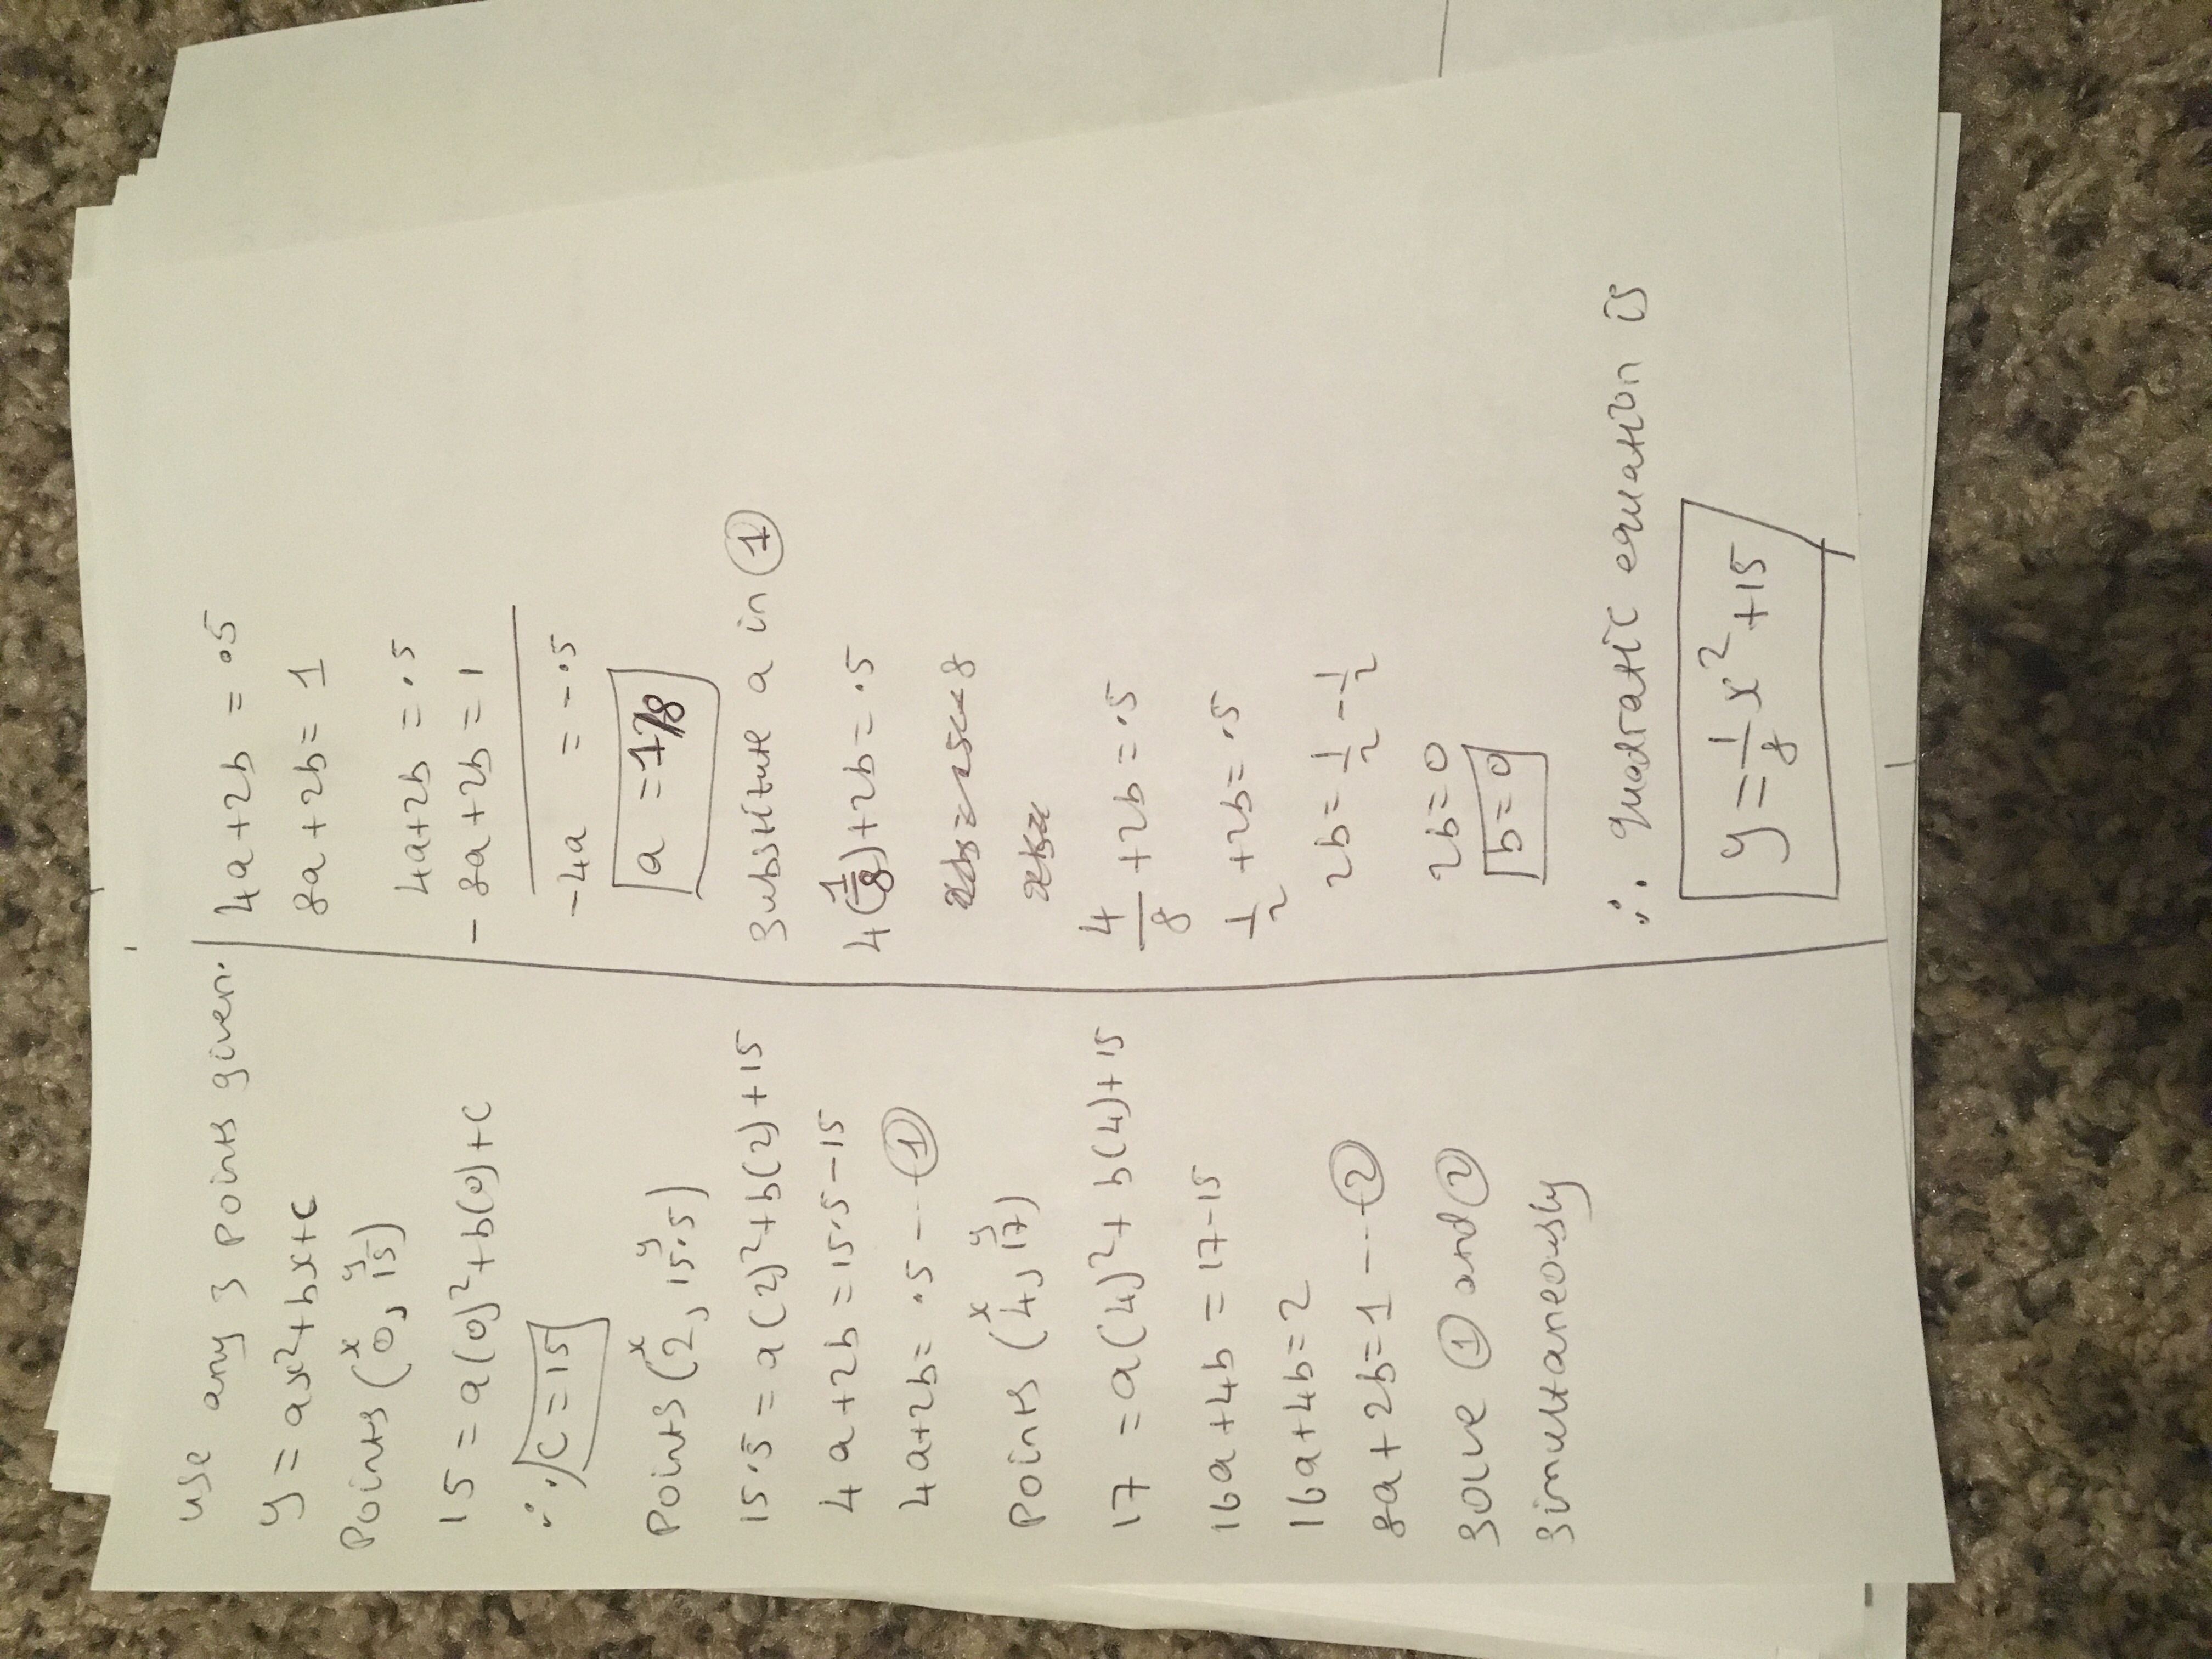 use any 3 points given.
y = ax²+bx+c
Points (0, 15)
x y
15 = a(0)²+b(0)+c
∴ c = 15
Points (2, 15.5)
x y
15.5 = a(2)²+b(2)+15
4a+2b = 15.5-15
4a+2b = .5 --- ①
Points (4, 17)
x y
17 = a(4)²+b(4)+15
16a+4b = 17-15
16a+4b = 2
8a+2b = 1 --- ②
Solve ① and ②
simultaneously
4a+2b = .5
8a+2b = 1
4a+2b = .5
- 8a+2b = 1
-4a = -.5
a = 1/8
Substitute a in ①
4(1/8)+2b = .5
4/8 +2b = .5
1/2 +2b = .5
2b = 1/2 - 1/2
2b = 0
b = 0
∴ Quadratic equation is
y = 1/8 x² +15